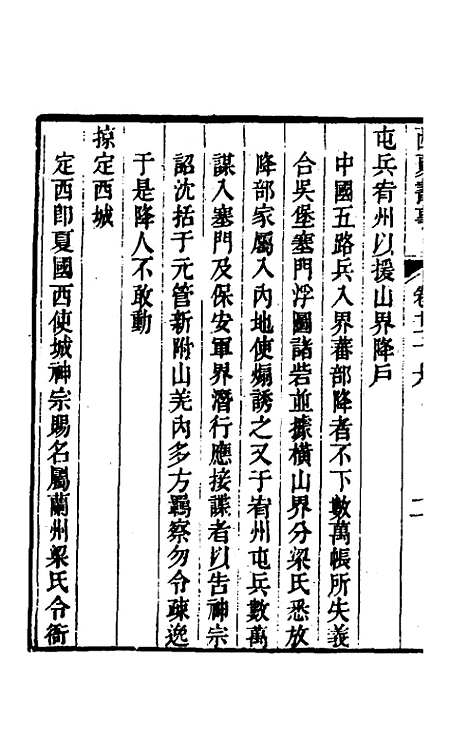 西夏書事 卷二十六 二
屯兵宥州以援山界降戶
中國五路兵入界蕃部降者不下數萬帳所失義
合吳堡塞門浮圖諸砦並據橫山界分梁氏悉放
降部家屬入內地使煽誘之又于宥州屯兵數萬
謀入塞門及保安軍界潛行應接諜者以告神宗
詔沈括于元管新附山羌內多方羈察勿令疎逸
于是降人不敢動
掠定西城
定西卽夏國西使城神宗賜名屬蘭州梁氏令衙